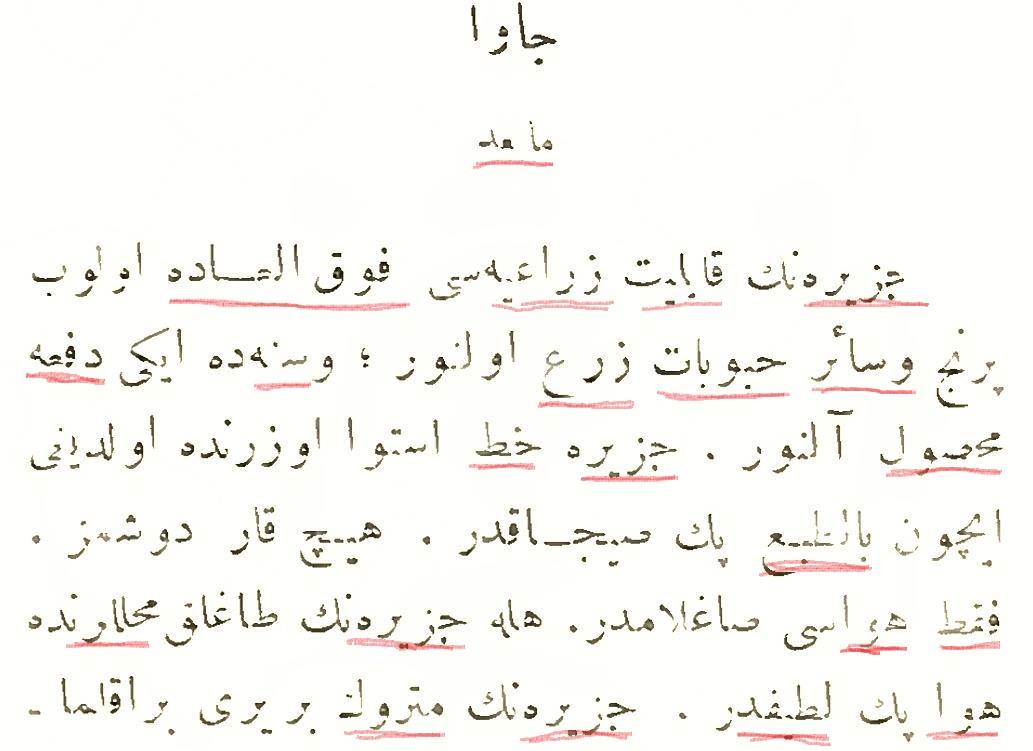 جاوا
ما بعد
جزیره‌نك قابلیت زراعیه‌سی فوق العـاده اولوب
پرنج وسائر حبوبات زرع اولنور ؛ وسنه‌ده ایکی دفعه
محصول آلنور . جزیره خط استوا اوزرنده اولدیغی
ایچون بالطبع پك صیجـاقدر . هیـچ قار دوشمز .
فقط هواسی صاغلامدر. هله جزیره‌نك طاغلق محللرنده
هوا پك لطیفدر . جزیره‌نك متروك بر یری براقلما -